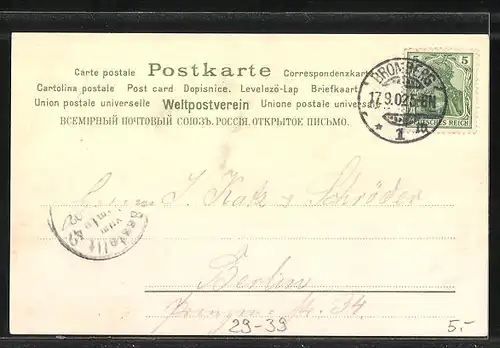 Carte postale Postkarte Correspondenzkarte
Cartolina postale Post card Dopisnice. Levelező-Lap Briefkaart
Union postale universelle Weltpostverein Unione postale universale
ВСЕМІРНЫЙ ПОЧТОВЫЙ СОЮЗЪ. РОССІЯ. ОТКРЫТОЕ ПИСЬМО.
5
DEUTSCHES REICH
BROMBERG
17.9.02.5-6N.
* 1
J. Katz & Schröder
Bestellt
vom
Berlin
34
29-39
5.-